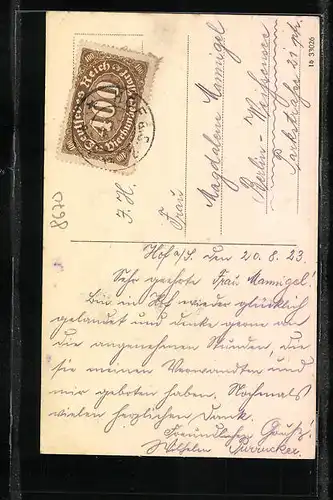 16 33026
Deutsches Reich
400
Vierhundert
8670
F. H.
Frau
Magdalene Mannigel
Berlin - Weißensee
Parkstraße 21 ptr.
Hof a/S. den 20. 8. 23.
Sehr geehrte Frau Mannigel!
Bin in Hof wieder glücklich
gelandet und denke gerne an
die angenehmen Stunden, die
sie meinen Verwandten und
mir geboten haben. Nochmals
vielen herzlichen Dank.
Freundliche Grüße!
Wilhelm